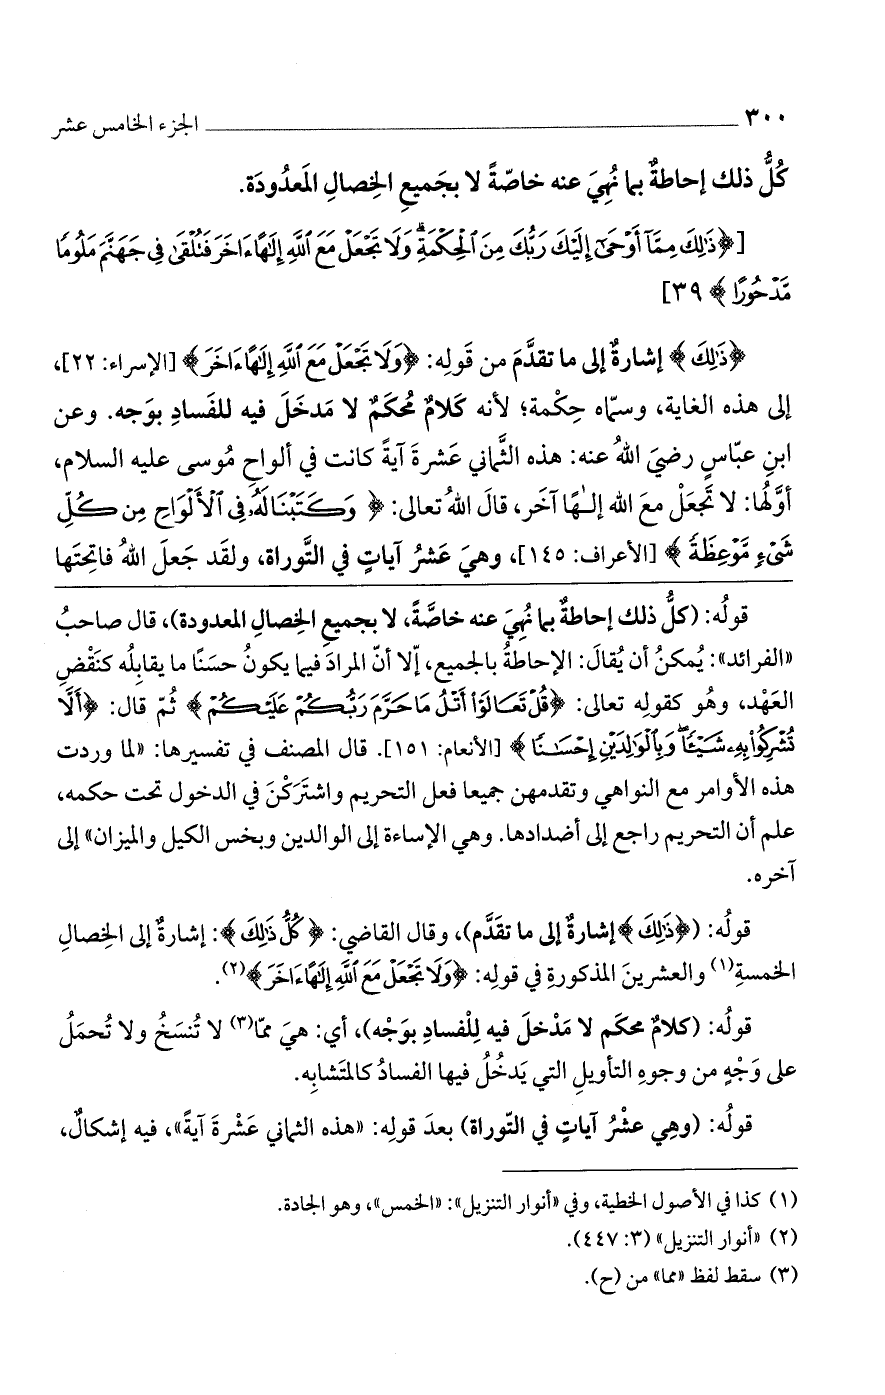 ٣٠٠ الجزء الخامس عشر
كُلُّ ذلك إحاطةٌ بما نُهِيَ عنه خاصّةً لا بجَميعِ الخِصالِ المَعدُودَة.
[﴿ذَٰلِكَ مِمَّآ أَوْحَىٰٓ إِلَيْكَ رَبُّكَ مِنَ ٱلْحِكْمَةِ ۗ وَلَا تَجْعَلْ مَعَ ٱللَّهِ إِلَٰهًا ءَاخَرَ فَتُلْقَىٰ فِى جَهَنَّمَ مَلُومًا
مَّدْحُورًا﴾ ٣٩]
﴿ذَٰلِكَ﴾ إشارةٌ إلى ما تقدَّمَ من قَولِه: ﴿وَلَا تَجْعَلْ مَعَ ٱللَّهِ إِلَٰهًا ءَاخَرَ﴾ [الإسراء: ٢٢]،
إلى هذه الغاية، وسمّاه حِكْمة؛ لأنه كَلامٌ مُحكَمٌ لا مَدخَلَ فيه للفَسادِ بوَجه. وعن
ابنِ عبّاسٍ رضيَ اللهُ عنه: هذه الثَّماني عَشرةَ آيةً كانت في ألواحِ مُوسى عليه السلام،
أوّلُها: لا تَجعَلْ معَ الله إلـٰهًا آخَر، قالَ اللهُ تعالى: ﴿وَكَتَبْنَا لَهُۥ فِى ٱلْأَلْوَاحِ مِن كُلِّ
شَىْءٍ مَّوْعِظَةً﴾ [الأعراف: ١٤٥]، وهيَ عَشرُ آياتٍ في التَّوراة، ولقَد جَعلَ اللهُ فاتِحتَها
قولُه: (كلُّ ذلك إحاطةٌ بما نُهِيَ عنه خاصَّةً، لا بجميعِ الخِصالِ المعدودة)، قال صاحبُ
«الفرائد»: يُمكنُ أن يُقالَ: الإحاطةُ بالجميع، إلّا أنّ المرادَ فيما يكونُ حسَنًا ما يقابلُه كنَقْضِ
العَهْد، وهُو كقولِه تعالى: ﴿قُلْ تَعَالَوْا۟ أَتْلُ مَا حَرَّمَ رَبُّكُمْ عَلَيْكُمْ﴾ ثُمّ قال: ﴿أَلَّا
تُشْرِكُوا۟ بِهِۦ شَيْـًٔا ۖ وَبِٱلْوَٰلِدَيْنِ إِحْسَٰنًا﴾ [الأنعام: ١٥١]. قال المصنف في تفسيرها: «لما وردت
هذه الأوامر مع النواهي وتقدمهن جميعا فعل التحريم واشتَرَكْنَ في الدخول تحت حكمه،
علم أن التحريم راجع إلى أضدادها. وهي الإساءة إلى الوالدين وبخس الكيل والميزان» إلى
آخره.
قولُه: (﴿ذَٰلِكَ﴾ إشارةٌ إلى ما تقدَّم)، وقال القاضي: ﴿كُلُّ ذَٰلِكَ﴾: إشارةٌ إلى الخِصالِ
الخمسةِ(١) والعشرينَ المذكورةِ في قولِه: ﴿وَلَا تَجْعَلْ مَعَ ٱللَّهِ إِلَٰهًا ءَاخَرَ﴾(٢).
قولُه: (كلامٌ محكَم لا مَدْخلَ فيه لِلْفسادِ بوَجْه)، أي: هيَ ممّا(٣) لا تُنسَخُ ولا تُحمَلُ
على وَجْهٍ من وجوهِ التأويلِ التي يَدخُلُ فيها الفسادُ كالمتَشابِه.
قولُه: (وهِي عشْرُ آياتٍ في التّوراة) بعدَ قولِه: «هذه الثماني عَشْرةَ آيةً»، فيه إشكالٌ،
(١) كذا في الأصول الخطية، وفي «أنوار التنزيل»: «الخمس»، وهو الجادة.
(٢) «أنوار التنزيل» (٣: ٤٤٧).
(٣) سقط لفظ «مما» من (ح).